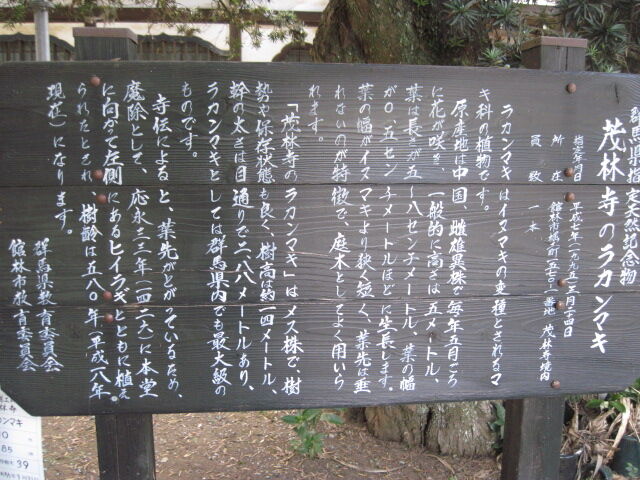 群馬県指定天然記念物
茂林寺のラカンマキ
指定年月日 平成七年(一九九五)三月二十四日
所在 館林市堀工町 番地 茂林寺境内
員数 一本
ラカンマキはイヌマキの変種とされるマ
キ科の植物です。
原産地は中国、雌雄異株で毎年五月ごろ
に花が咲き、一般的に高さは五メートル、
葉は長さが五〜八センチメートル、葉の幅
が〇.五センチメートルほどに生長します。
葉の幅がイヌマキより狭く短く、葉先は垂
れないのが特徴で、庭木としてよく用いら
れます。
「茂林寺のラカンマキ」はメス株で、樹
勢や保存状態も良く、樹高は約一四メートル、
幹の太さは目通りで二.八八メートルあり、
ラカンマキとしては群馬県内でも最大級の
ものです。
寺伝によると、葉先がとがっているため、
魔除として、応永三三年(一四二六)に本堂
に向かって左側にあるヒイラギとともに植え
られたとされ、樹齢は五八〇年(平成一八年
現在)になります。
群馬県教育委員会
館林市教育委員会
39